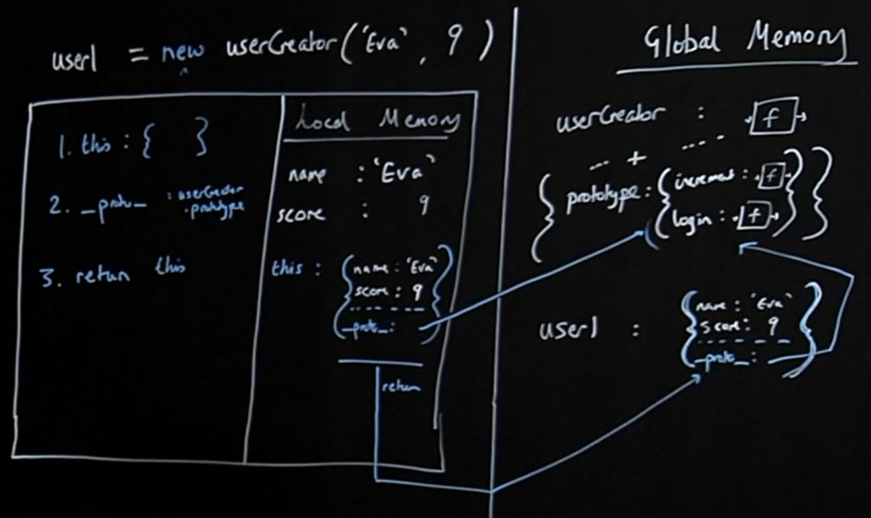 user1 = new userCreator('Eva', 9)
1. this : { }
2. _proto_ : userCreator
.prototype
3. return this
Local Memory
name : 'Eva'
score : 9
this : { name : 'Eva'
score : 9
_proto_ : }
return
Global Memory
userCreator : f
... + ...
{ prototype : { increment : f
login : f } }
user1 : { name : 'Eva'
score : 9
_proto_ : }